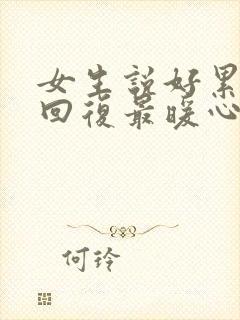 女生説好累
回復最暖心
何玲